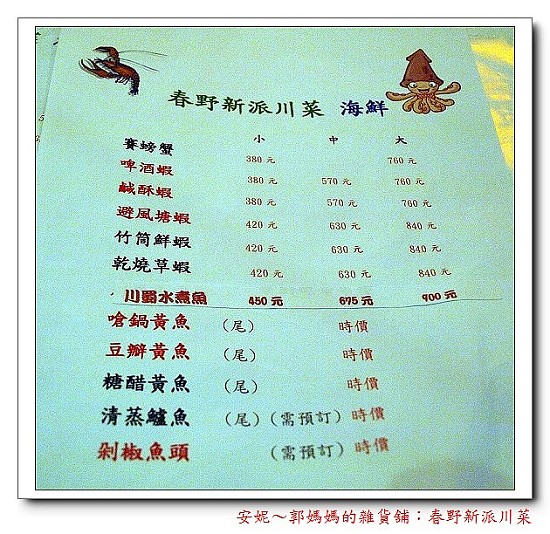 春野新派川菜 海鮮
小 中 大
賽螃蟹 380 元 760 元
啤酒蝦 380 元 570 元 760 元
鹹酥蝦 380 元 570 元 760 元
避風塘蝦 420 元 630 元 840 元
竹筒鮮蝦 420 元 630 元 840 元
乾燒草蝦 420 元 630 元 840 元
川蜀水煮魚 450 元 675 元 900 元
嗆鍋黃魚 (尾) 時價
豆瓣黃魚 (尾) 時價
糖醋黃魚 (尾) 時價
清蒸鱸魚 (尾)(需預訂) 時價
剁椒魚頭 (需預訂) 時價
安妮~郭媽媽的雜貨舖:春野新派川菜